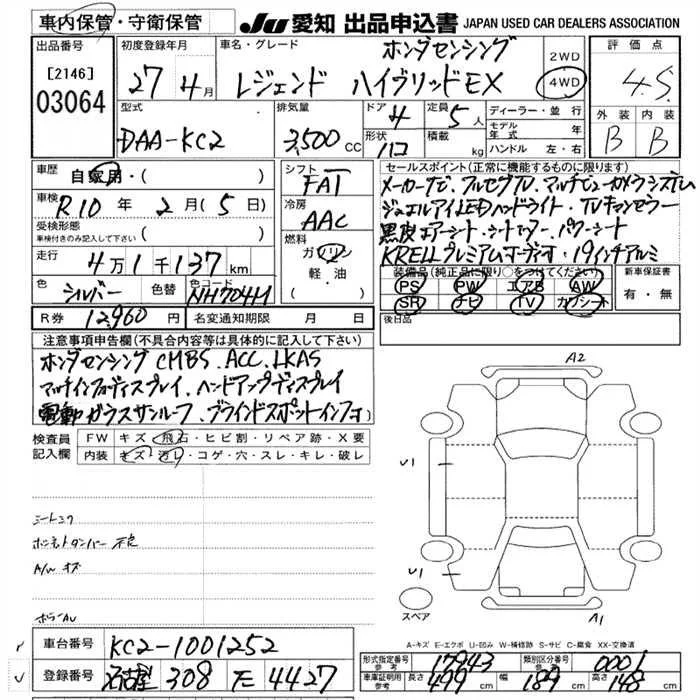 車内保管・守衛保管
JU 愛知 出品申込書 JAPAN USED CAR DEALERS ASSOCIATION
出品番号
[2146]
03064
初度登録年月
27年4月
車名・グレード
ホンダセンシング
レジェンド ハイブリッドEX
2WD
4WD
評価点
4.5
外装 内装
B B
型式
DAA-KC2
排気量
3,500cc
ドア 4
形状 ハコ
定員 5人
積載 kg
ディーラー・並行
モデル年式 年
ハンドル 左・右
車歴
自家用・( )
車検
R10年2月(5日)
受検形態
車検付きのみ記入して下さい ( )
走行
4万1千137km
色 シルバー 色替
色コード NH704M
シフト
FAT
冷房
AAC
燃料
ガソリン
軽油
( )
セールスポイント(正常に機能するものに限ります)
メーカーナビ、フルセグTV、マルチビューカメラシステム
ジュエルアイLEDヘッドライト・TVキャンセラー
黒皮エアーシート・シートヒーター・パワーシート
KRELLプレミアムオーディオ・19インチアルミ
装備品(純正品に限り○をつけてください)
PS PW エアB AW
SR ナビ TV カワシート
新車保証書
有・無
R券 12,960円
名変通知期限 月 日
後日品
注意事項申告欄(不具合内容等は具体的に記入して下さい)
ホンダセンシング CMBS、ACC、LKAS
マルチインフォディスプレイ、ヘッドアップディスプレイ
電動ガラスサンルーフ、ブラインドスポットインフォ
検査員記入欄
FW キズ・飛石・ヒビ割・リペア跡・X要
内装 キズ・汚レ・コゲ・穴・スレ・キレ・破レ
A2
U1
U1
A1
スペア
シートスレ
ボンネットダンパー 不良
A/W キズ
ホイラーAU
A-キズ E-エクボ U-凹み W-補修跡 S-サビ C-腐食 XX-交換済
車台番号 KC2-1001252
登録番号 名古屋 308 モ 4427
形式指定番号 参考 17943
類別区分番号 参考 0001
車庫証明用 参考 長さ 499cm 幅 189cm 高さ 148cm